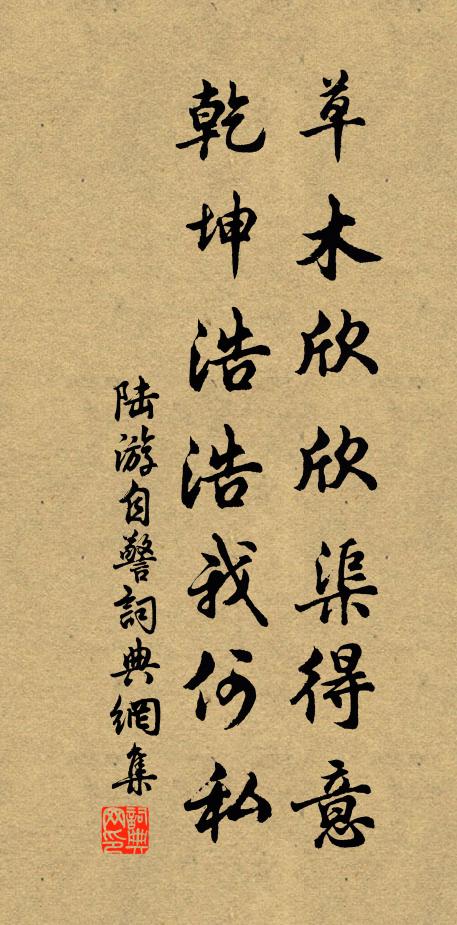 草木欣欣渠得意
乾坤浩浩我何私
陆游自警詞典網集
詞典网印